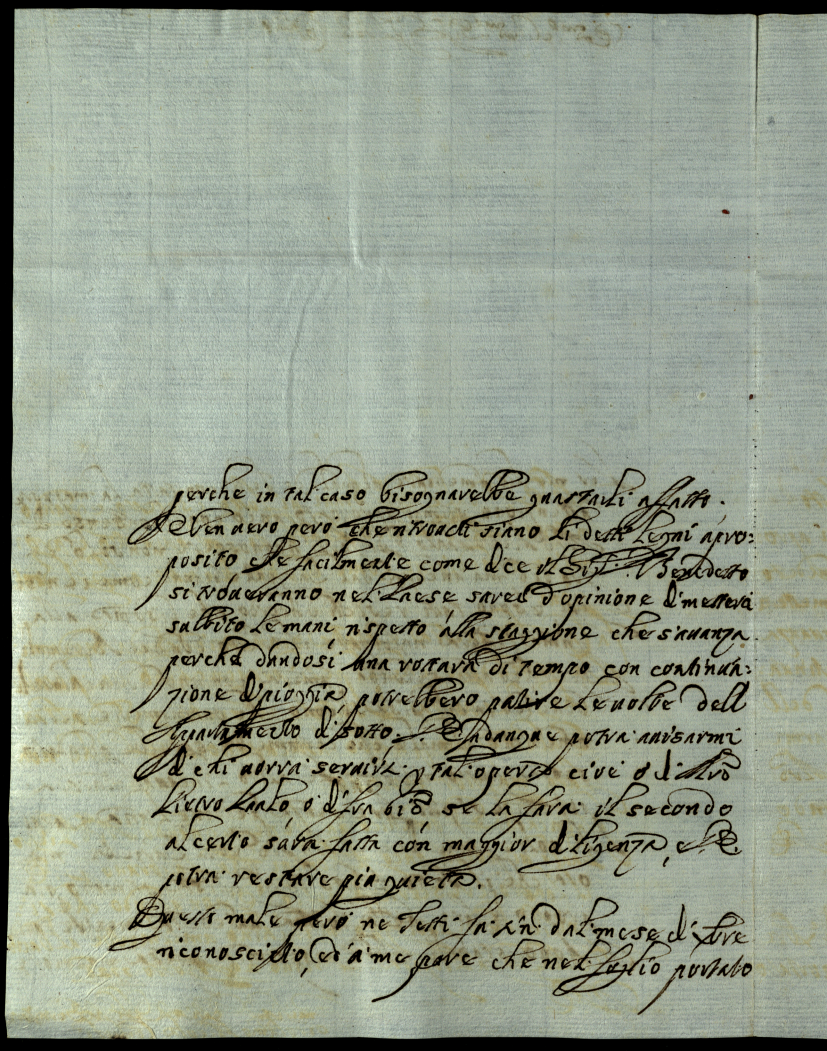 perche in tal caso bisognarebbe guastarli affatto.
E ben vero però che ritrovati siano li detti Legni apro=
posito che facilmente come dice il Sig.r Benedetto
si troveranno nel Paese sarei d'opinione di mettervi
subbito le mani rispetto alla staggione che s'avanza
perche dandosi una rottura di tempo con continua=
zione di pioggia potrebbero patire le volte dell
Appartimento di sotto. adunque potrà avisarmi
di chi vorrà servirsi p tal opera cioè o di Mro
Pietro Paolo, o di fra Gio se la farà il secondo
al certo sarà fatta con maggior diligenza, e
potrà restare più quieta.
Questo male però ne Tetti fu sin dal mese di Xbre
riconosciuto, ed a me pare che nel foglio portato